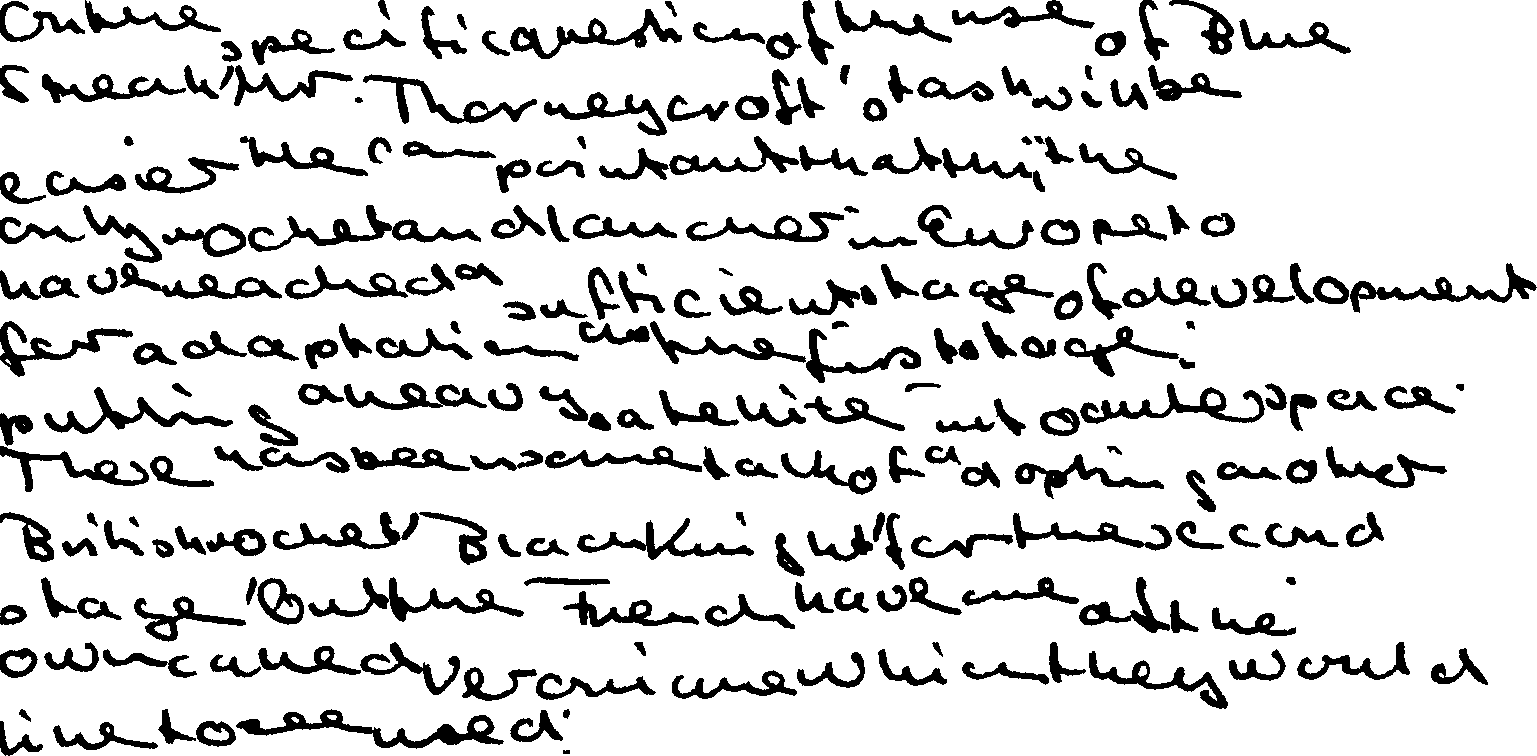 On the specific question of the use of Blue
Streak, Mr. Thorneycroft's task will be
easier if he can point out that this is the
only rocket and launcher in Europe to
have reached a sufficient stage of development
for adaptation as the first stage in
putting a heavy satellite into outer space.
There has been some talk of adopting another
British rocket, Black Knight, for the second
stage. But the French have one of their
own called Veronique which they would
like to see used.